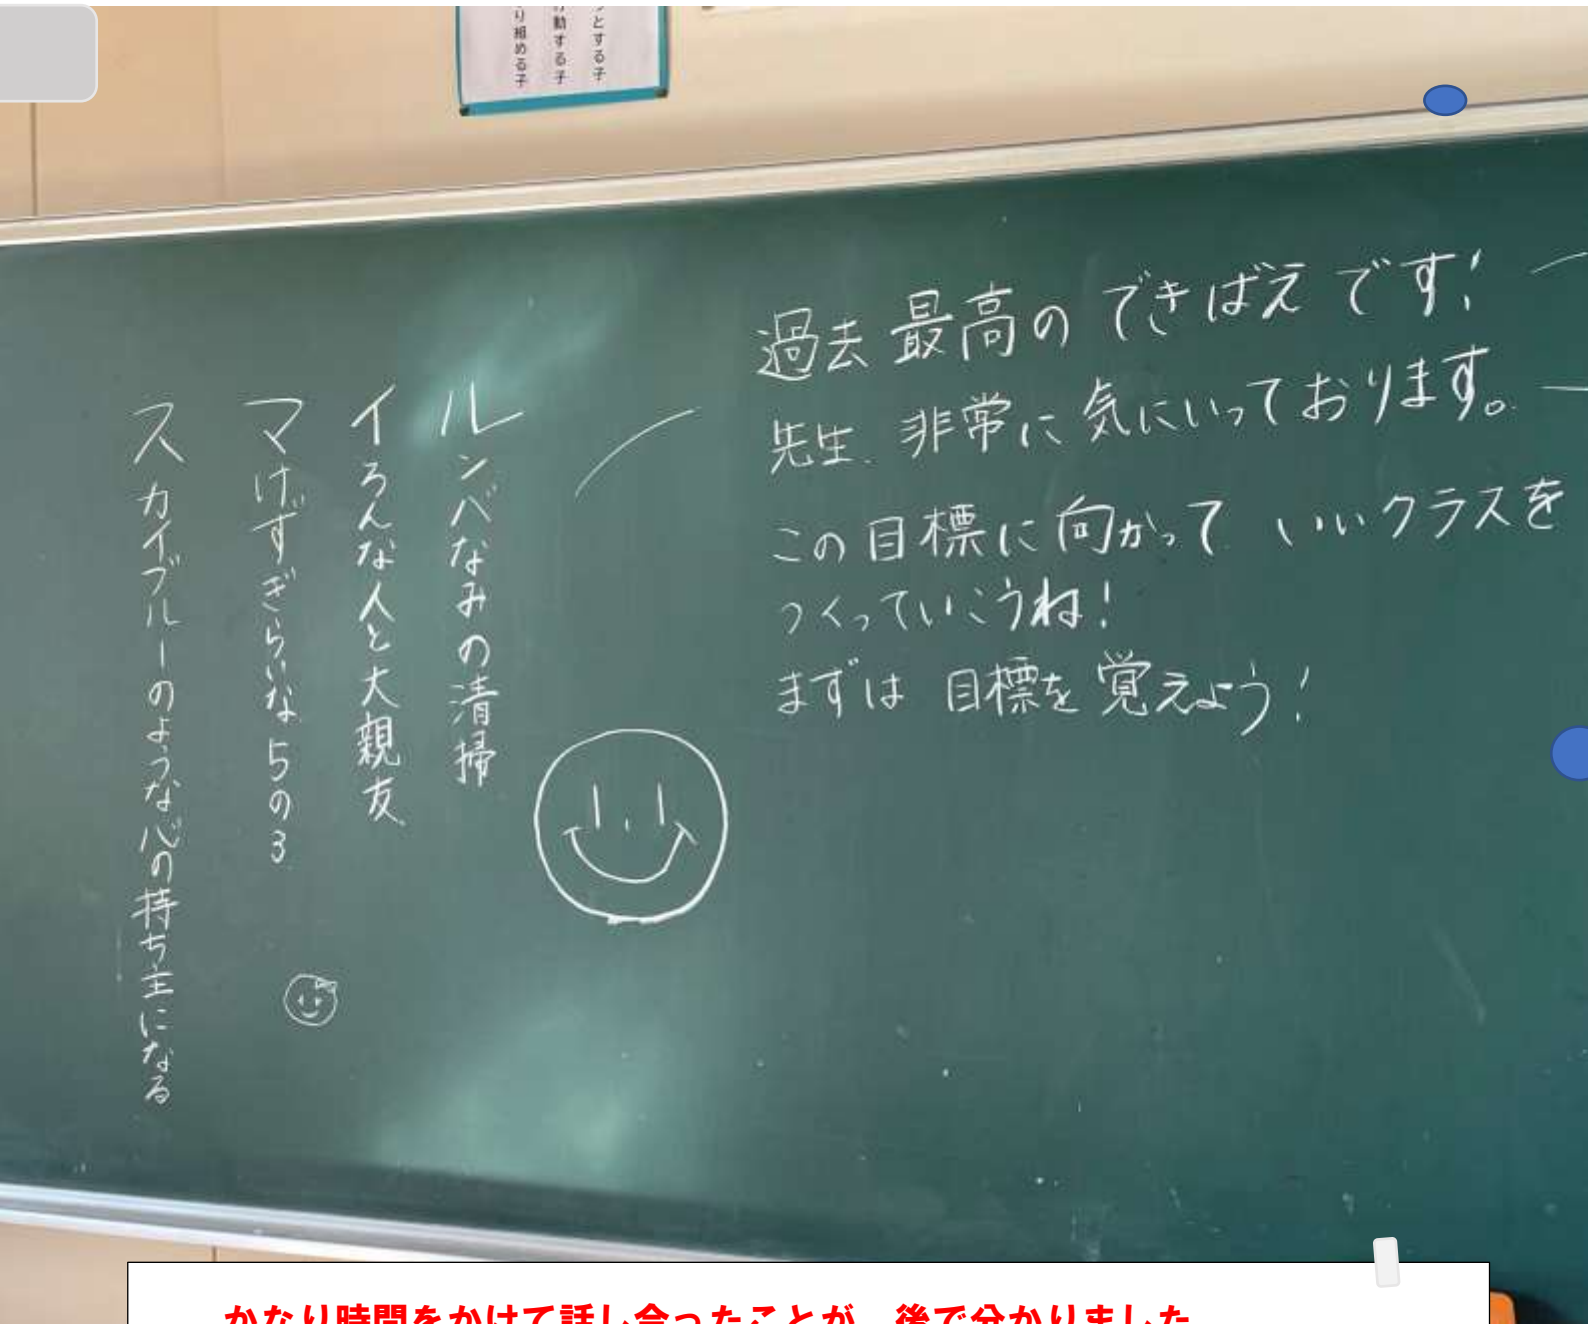 とする子
動する子
り組める子
過去最高のできばえです!
先生、非常に気にいっております。
この目標に向かって いいクラスを
つくっていこうね!
まずは 目標を覚えよう!
ルンバなみの清掃
イろんな人と大親友
マけずぎらいな5の3
スカイブルーのような心の持ち主になる
かなり時間をかけて話し合ったことが、後で分かりました